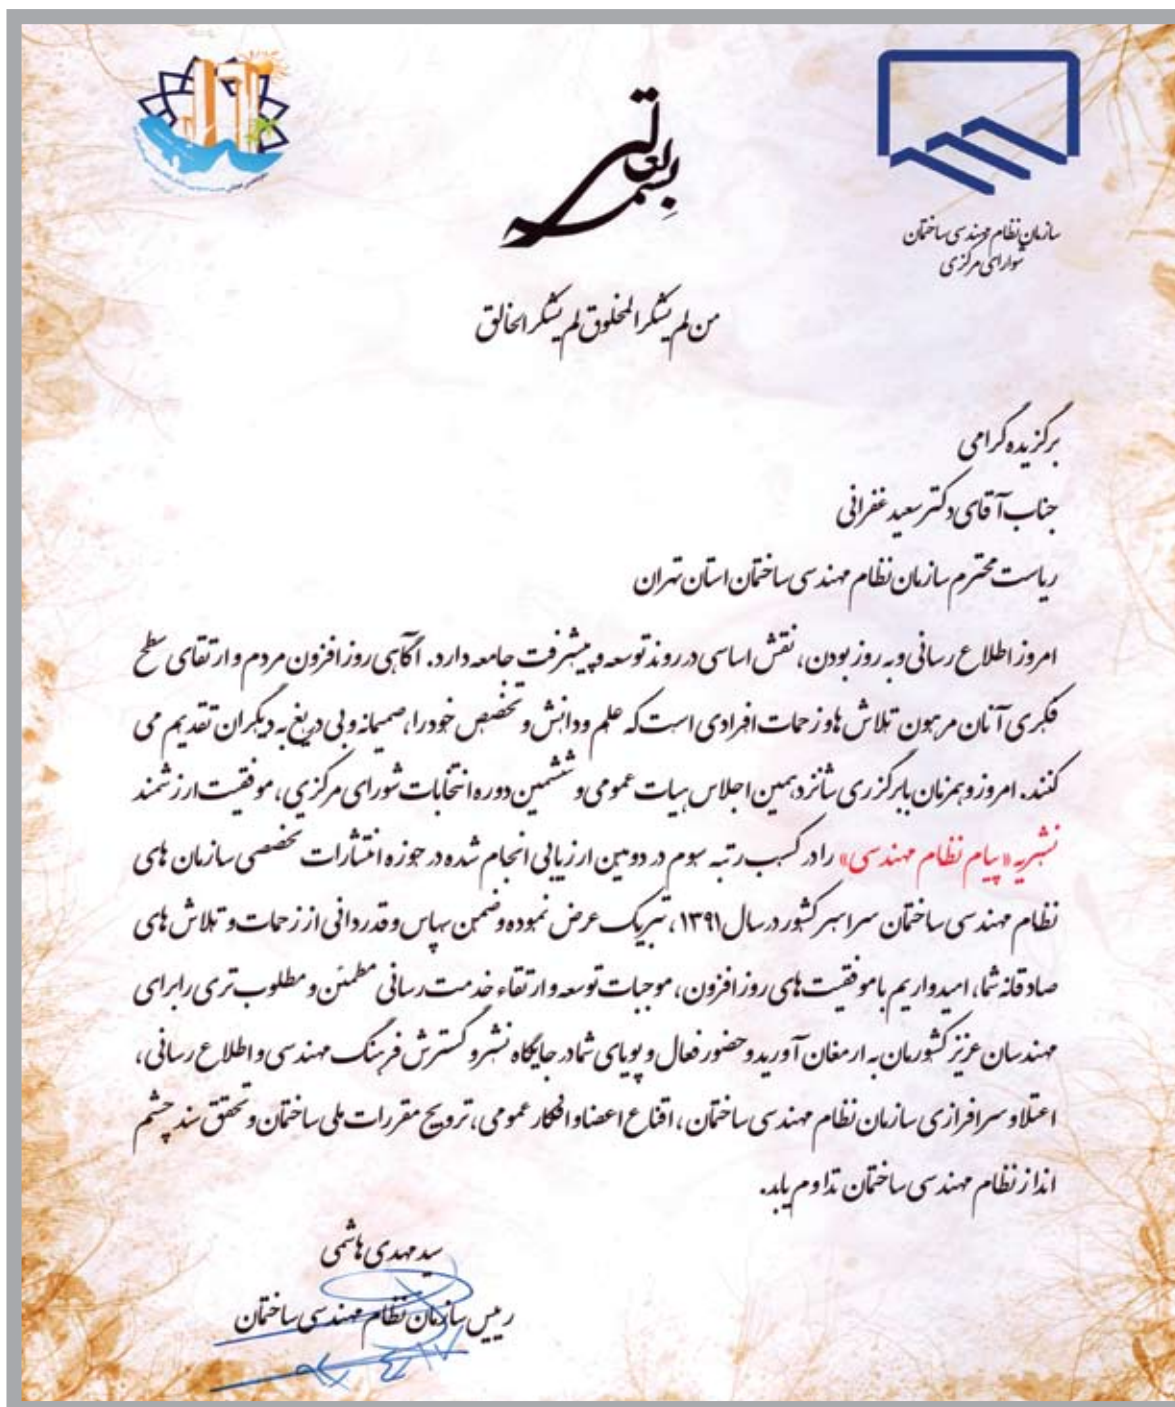 بسمه تعالی
سازمان نظام مهندسی ساختمان
شورای مرکزی
من لم یشکر المخلوق لم یشکر الخالق
برگزیده گرامی
جناب آقای دکتر سعید غفرانی
ریاست محترم سازمان نظام مهندسی ساختمان استان تهران
امروز اطلاع رسانی و به روز بودن، نقش اساسی در روند توسعه و پیشرفت جامعه دارد. آگاهی روز افزون مردم و ارتقای سطح
فکری آنان مرهون تلاش ها و زحمات افرادی است که علم و دانش و تخصص خود را، صمیمانه و بی دریغ به دیگران تقدیم می
کنند. امروز و همزمان با برگزری شانزدهمین اجلاس هیات عمومی و ششمین دوره انتخابات شورای مرکزی، موفقیت ارزشمند
نشریه «پیام نظام مهندسی» را در کسب رتبه سوم در دومین ارزیابی انجام شده در حوزه انتشارات تخصصی سازمان های
نظام مهندسی ساختمان سراسر کشور در سال ۱۳۹۱، تبریک عرض نموده و ضمن سپاس و قدردانی از زحمات و تلاش های
صادقانه شما، امیدواریم با موفقیت های روز افزون، موجبات توسعه و ارتقاء خدمت رسانی مطمئن و مطلوب تری را برای
مهندسان عزیز کشورمان به ارمغان آورید و حضور فعال و پویای شما در جایگاه نشر و گسترش فرهنگ مهندسی و اطلاع رسانی،
اعتلا و سرافرازی سازمان نظام مهندسی ساختمان، اقناع اعضا و افکار عمومی، ترویج مقررات ملی ساختمان و تحقق سند چشم
انداز نظام مهندسی ساختمان تداوم یابد.
سید مهدی هاشمی
رییس سازمان نظام مهندسی ساختمان